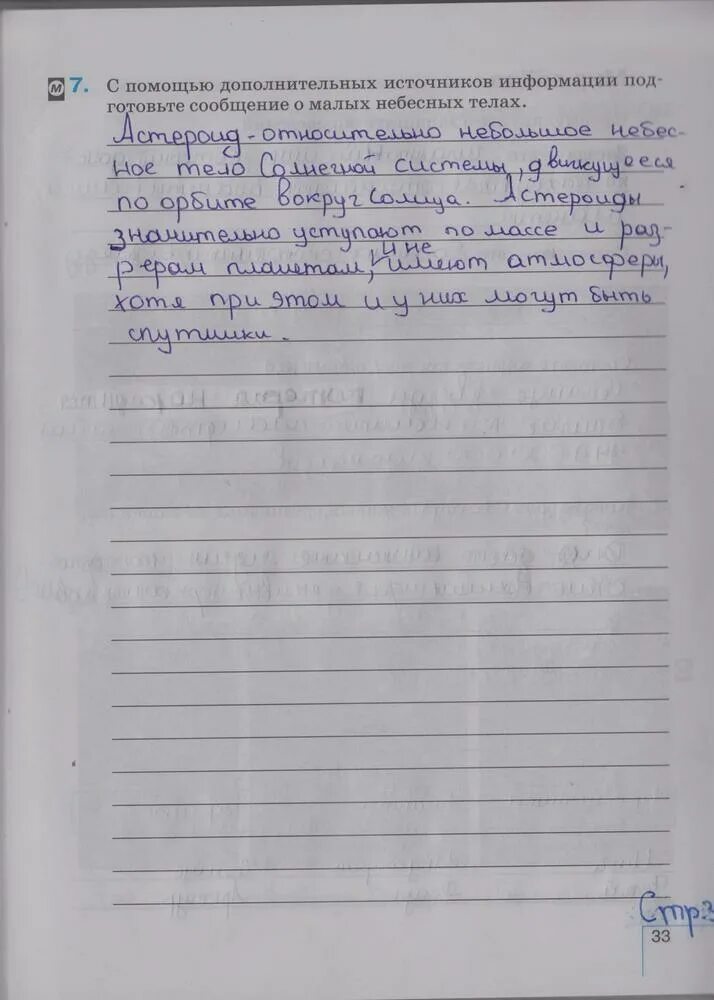 М 7. С помощью дополнительных источников информации под-
готовьте сообщение о малых небесных телах.
Астероид - относительно небольшое небес-
ное тело Солнечной системы, движущееся
по орбите вокруг Солнца. Астероиды
значительно уступают по массе и раз-
мерам планетам, и не имеют атмосферы,
хотя при этом и у них могут быть
спутники.
Стр.3
33